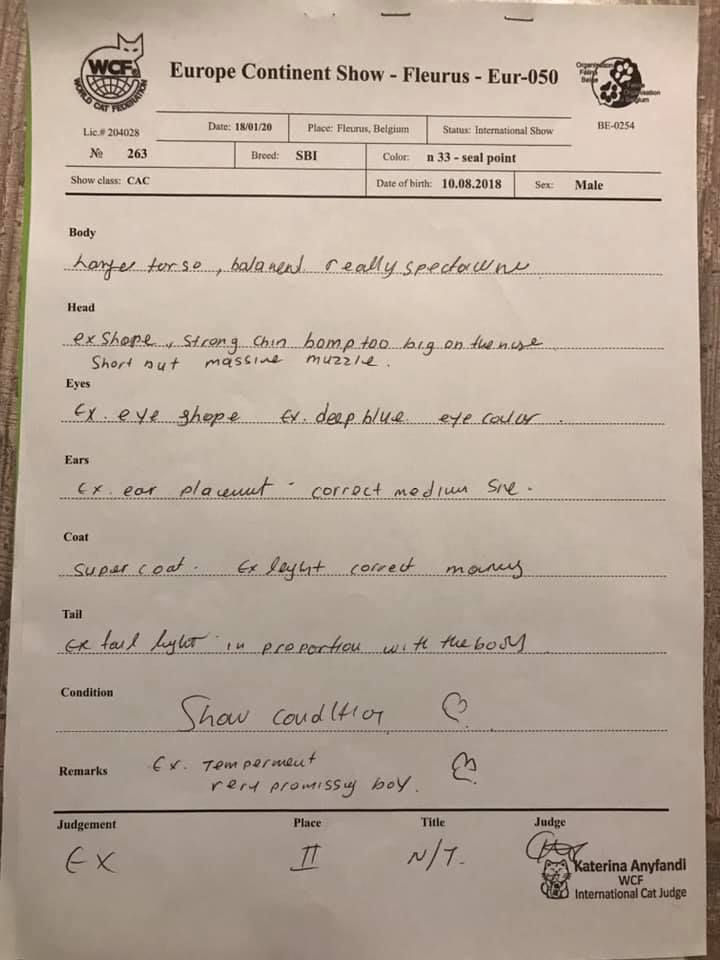 WCF®
WORLD CAT FEDERATION
Europe Continent Show - Fleurus - Eur-050
Organisation
Féline
Belge
Organisation
Belgium
Lic.# 204028
Date: 18/01/20
Place: Fleurus, Belgium
Status: International Show
BE-0254
№ 263
Breed: SBI
Color: n 33 - seal point
Show class: CAC
Date of birth: 10.08.2018
Sex: Male
Body
torso, really
Head
ex shape, strong chin bomp too big on the nose
short but massive muzzle.
Eyes
Ex. eye shape Ex. deep blue eye color.
Ears
Ex. ear placement - correct medium size.
Coat
Super coat. Ex correct
Tail
Ex tail in proportion with the body
Condition
Show condition
Remarks
Ex. Temperment
very promissing boy.
Judgement
Place
Title
Judge
EX
II
N/T.
Katerina Anyfandi
WCF
International Cat Judge